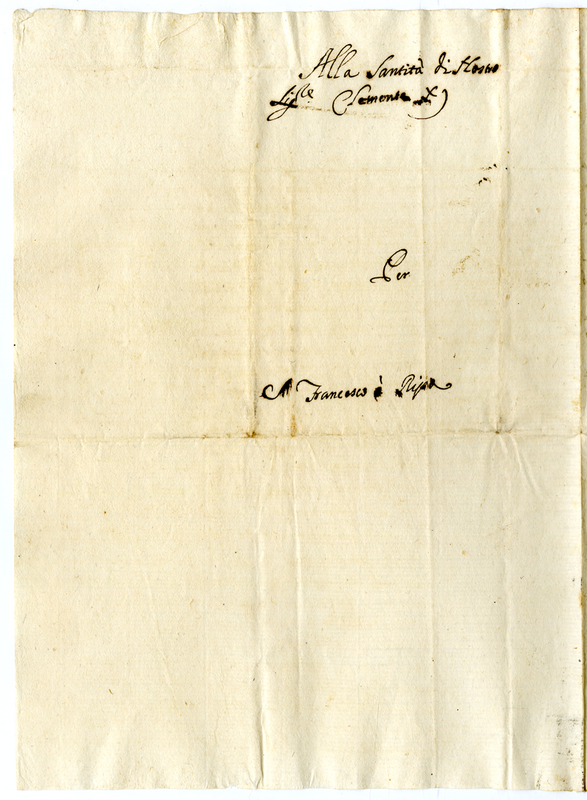 Alla Santità di Nostro
Sig.re Clemente X
Per
Francesco à Ripa